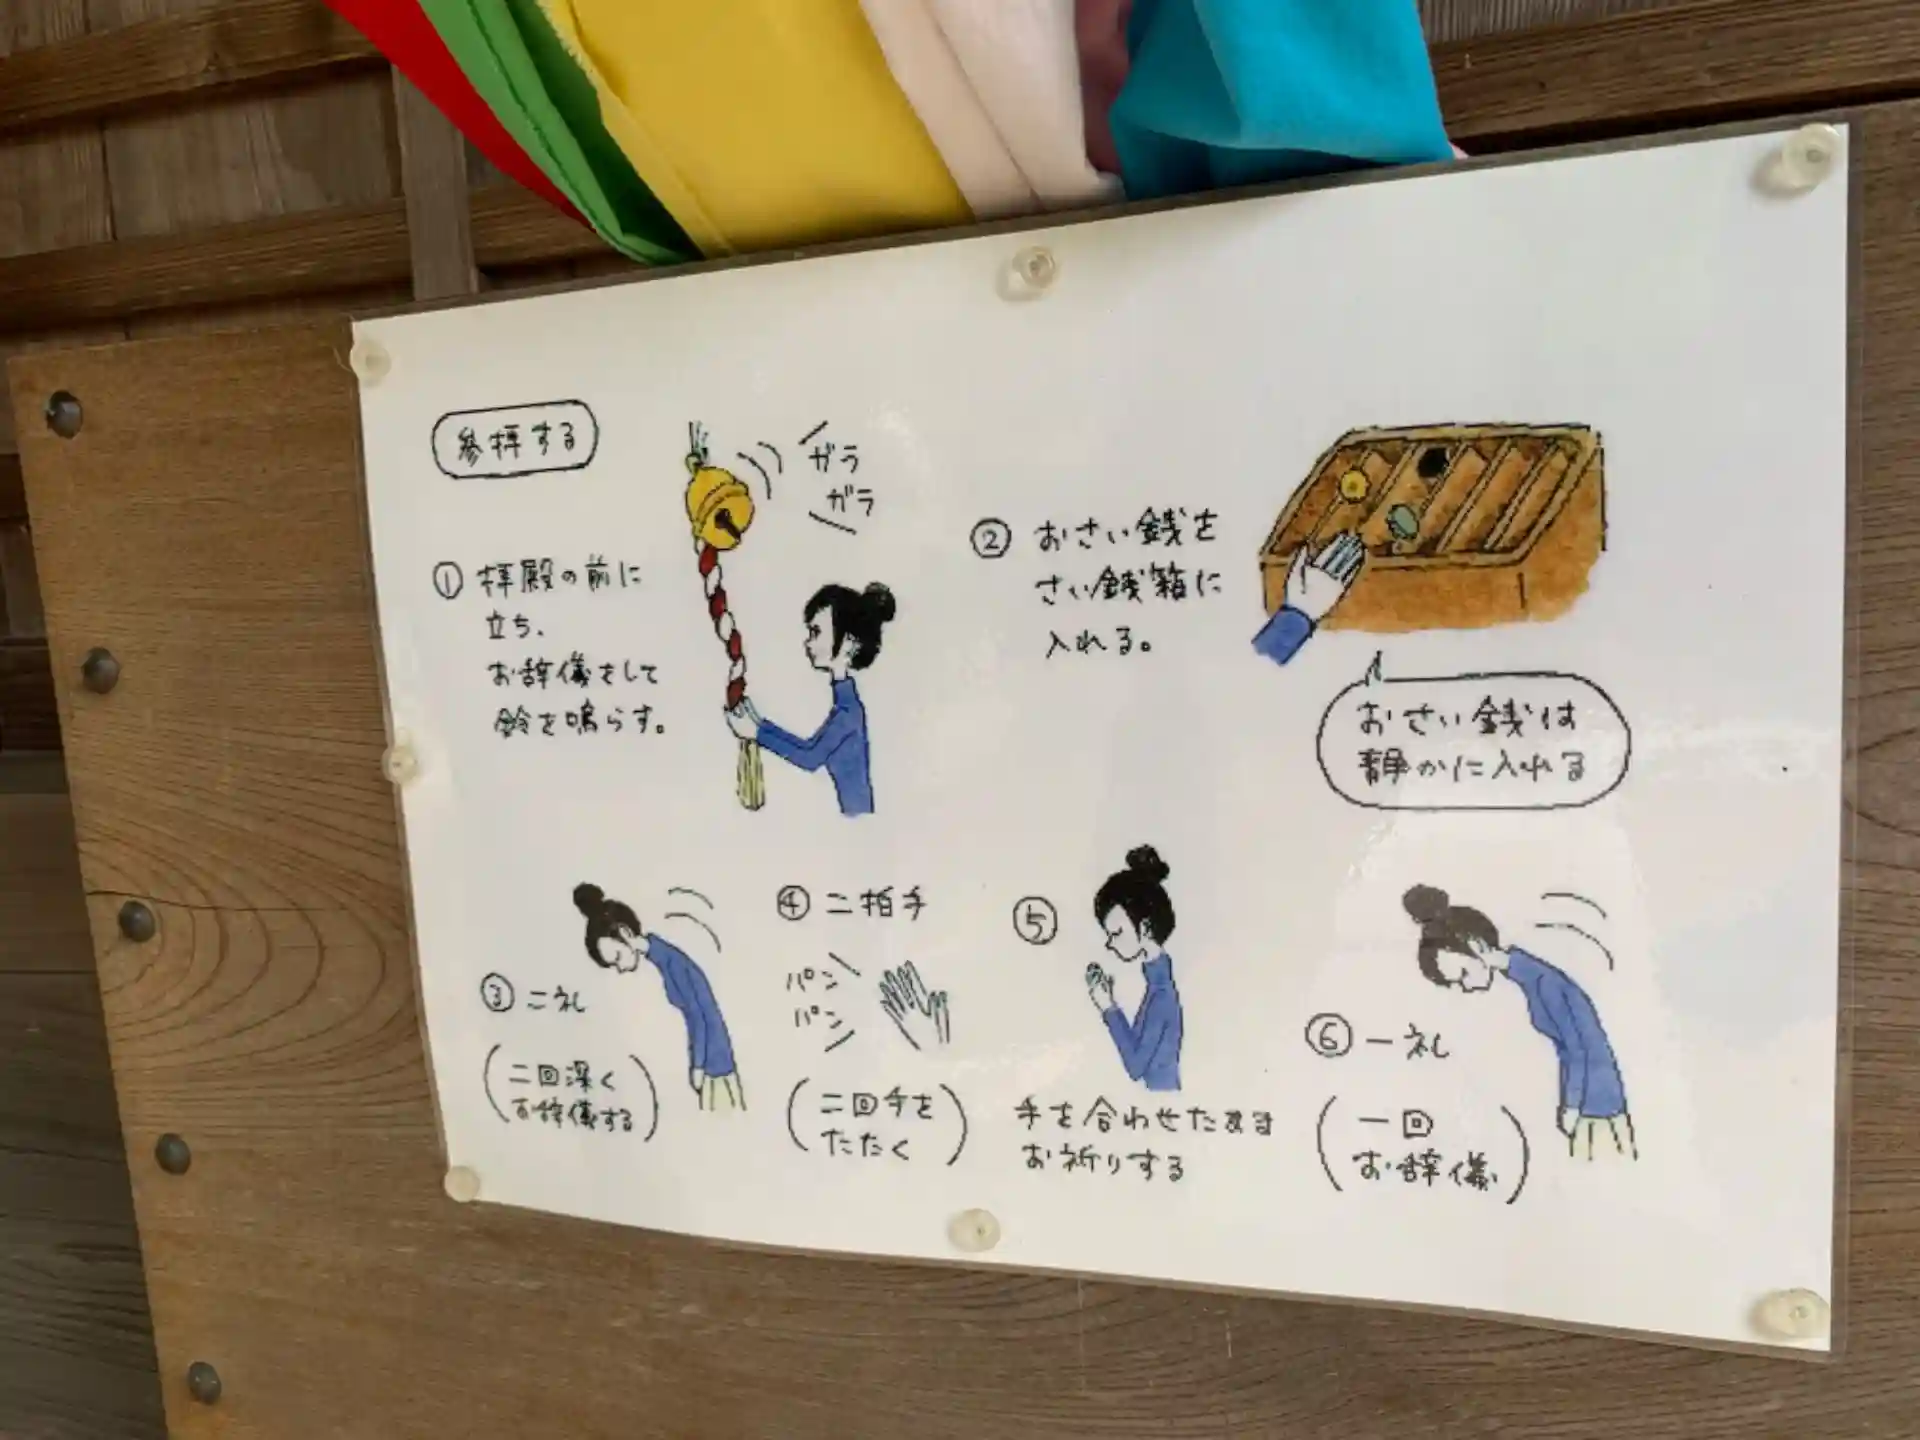 参拝する
ガラ
ガラ
① 拝殿の前に
立ち、
お辞儀をして
鈴を鳴らす。
② おさい銭を
さい銭箱に
入れる。
おさい銭は
静かに入れる
③ 二礼
(二回深く
お辞儀する)
④ 二拍手
パン
パン
(二回手を
たたく)
⑤
手を合わせたまま
お祈りする
⑥ 一礼
(一回
お辞儀)